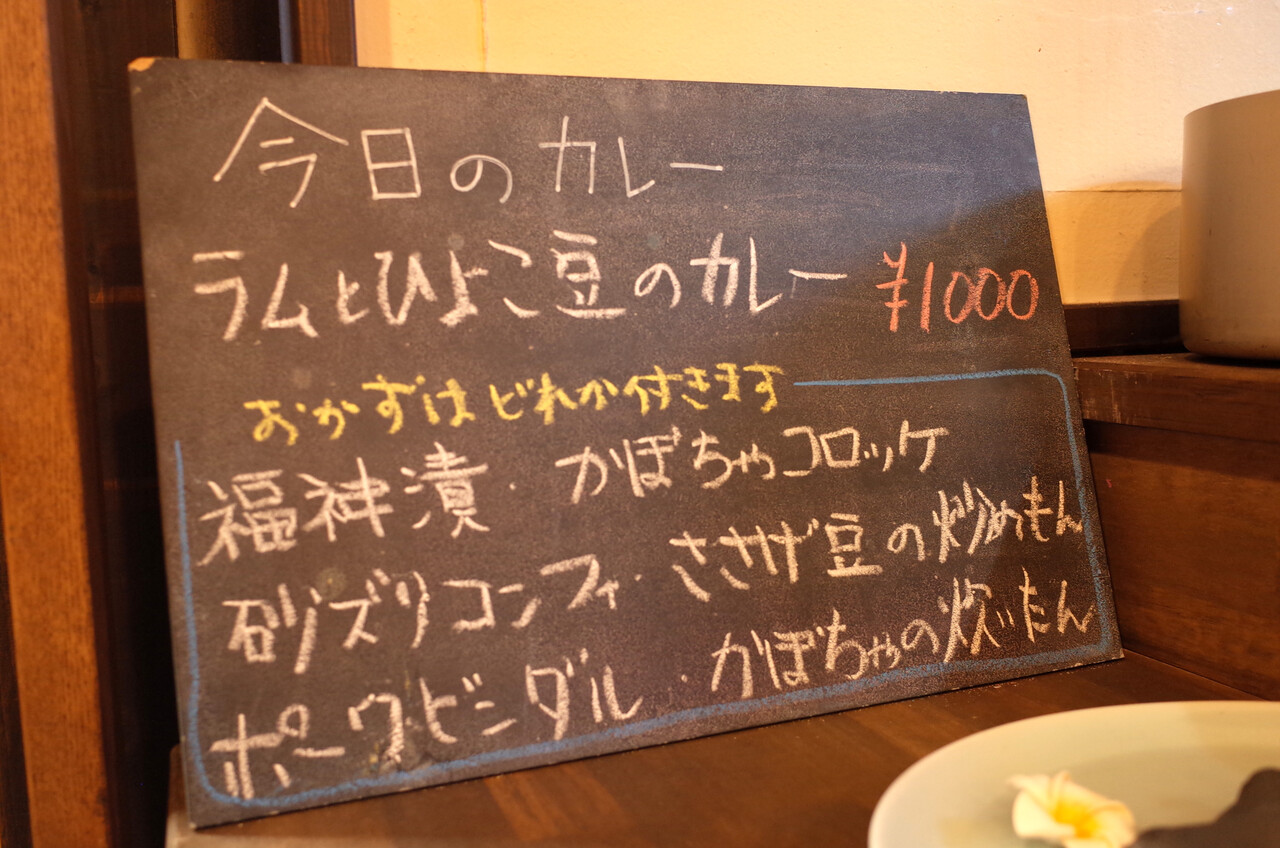 今日のカレー
ラムとひよこ豆のカレー ¥1000
おかずはどれか付きます
福神漬・かぼちゃコロッケ
砂ズリコンフィ・ささげ豆の炒めもん
ポークビンダル・かぼちゃの炊いたん